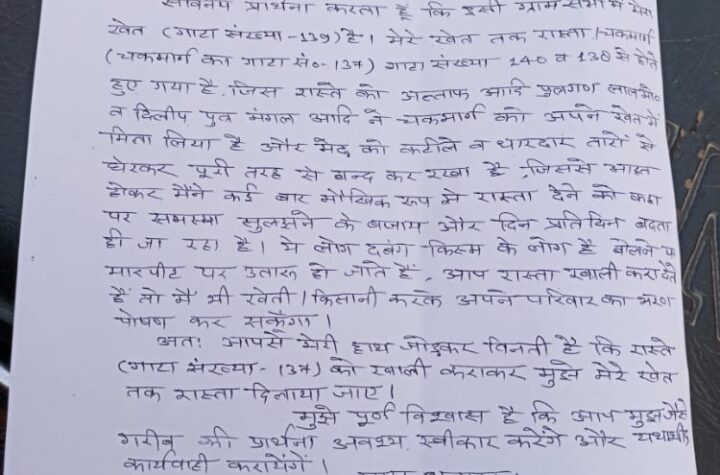 सविनय प्रार्थना करता हूँ कि इसी ग्राम सभा में मेरा
खेत (गाटा संख्या -139) है। मेरे खेत तक रास्ता / चकमार्ग
(चकमार्ग का गाटा सं०- 137) गाटा संख्या 140 व 138 से होते
हुए गया है, जिस रास्ते को अल्ताफ आदि पुत्रगण लाल मो०
व दिलीप पुत्र मंगल आदि ने चकमार्ग को अपने खेत में
मिला लिया है और मेड़ को कटीले व धारदार तारों से
घेरकर पूरी तरह से बन्द कर रखा है, जिससे आहत
होकर मैंने कई बार मौखिक रूप में रास्ता देने को कहा
पर समस्या सुलझने के बजाय और दिन प्रतिदिन बढ़ता
ही जा रहा है। ये लोग दबंग किस्म के लोग है बोलने प
मारपीट पर उतारू हो जाते हैं, आप रास्ता खाली करा देते
हैं तो मैं भी खेती / किसानी करके अपने परिवार का भरण
पोषण कर सकूँगा।
अतः आपसे मेरी हाथ जोड़कर विनती है कि रास्ते
(गाटा संख्या - 137) को खाली कराकर मुझे मेरे खेत
तक रास्ता दिलाया जाए।
मुझे पूर्ण विश्वास है कि आप मुझ जैसे
गरीब की प्रार्थना अवश्य स्वीकार करेंगे और यथाशीघ्र
कार्यवाही करायेंगें।